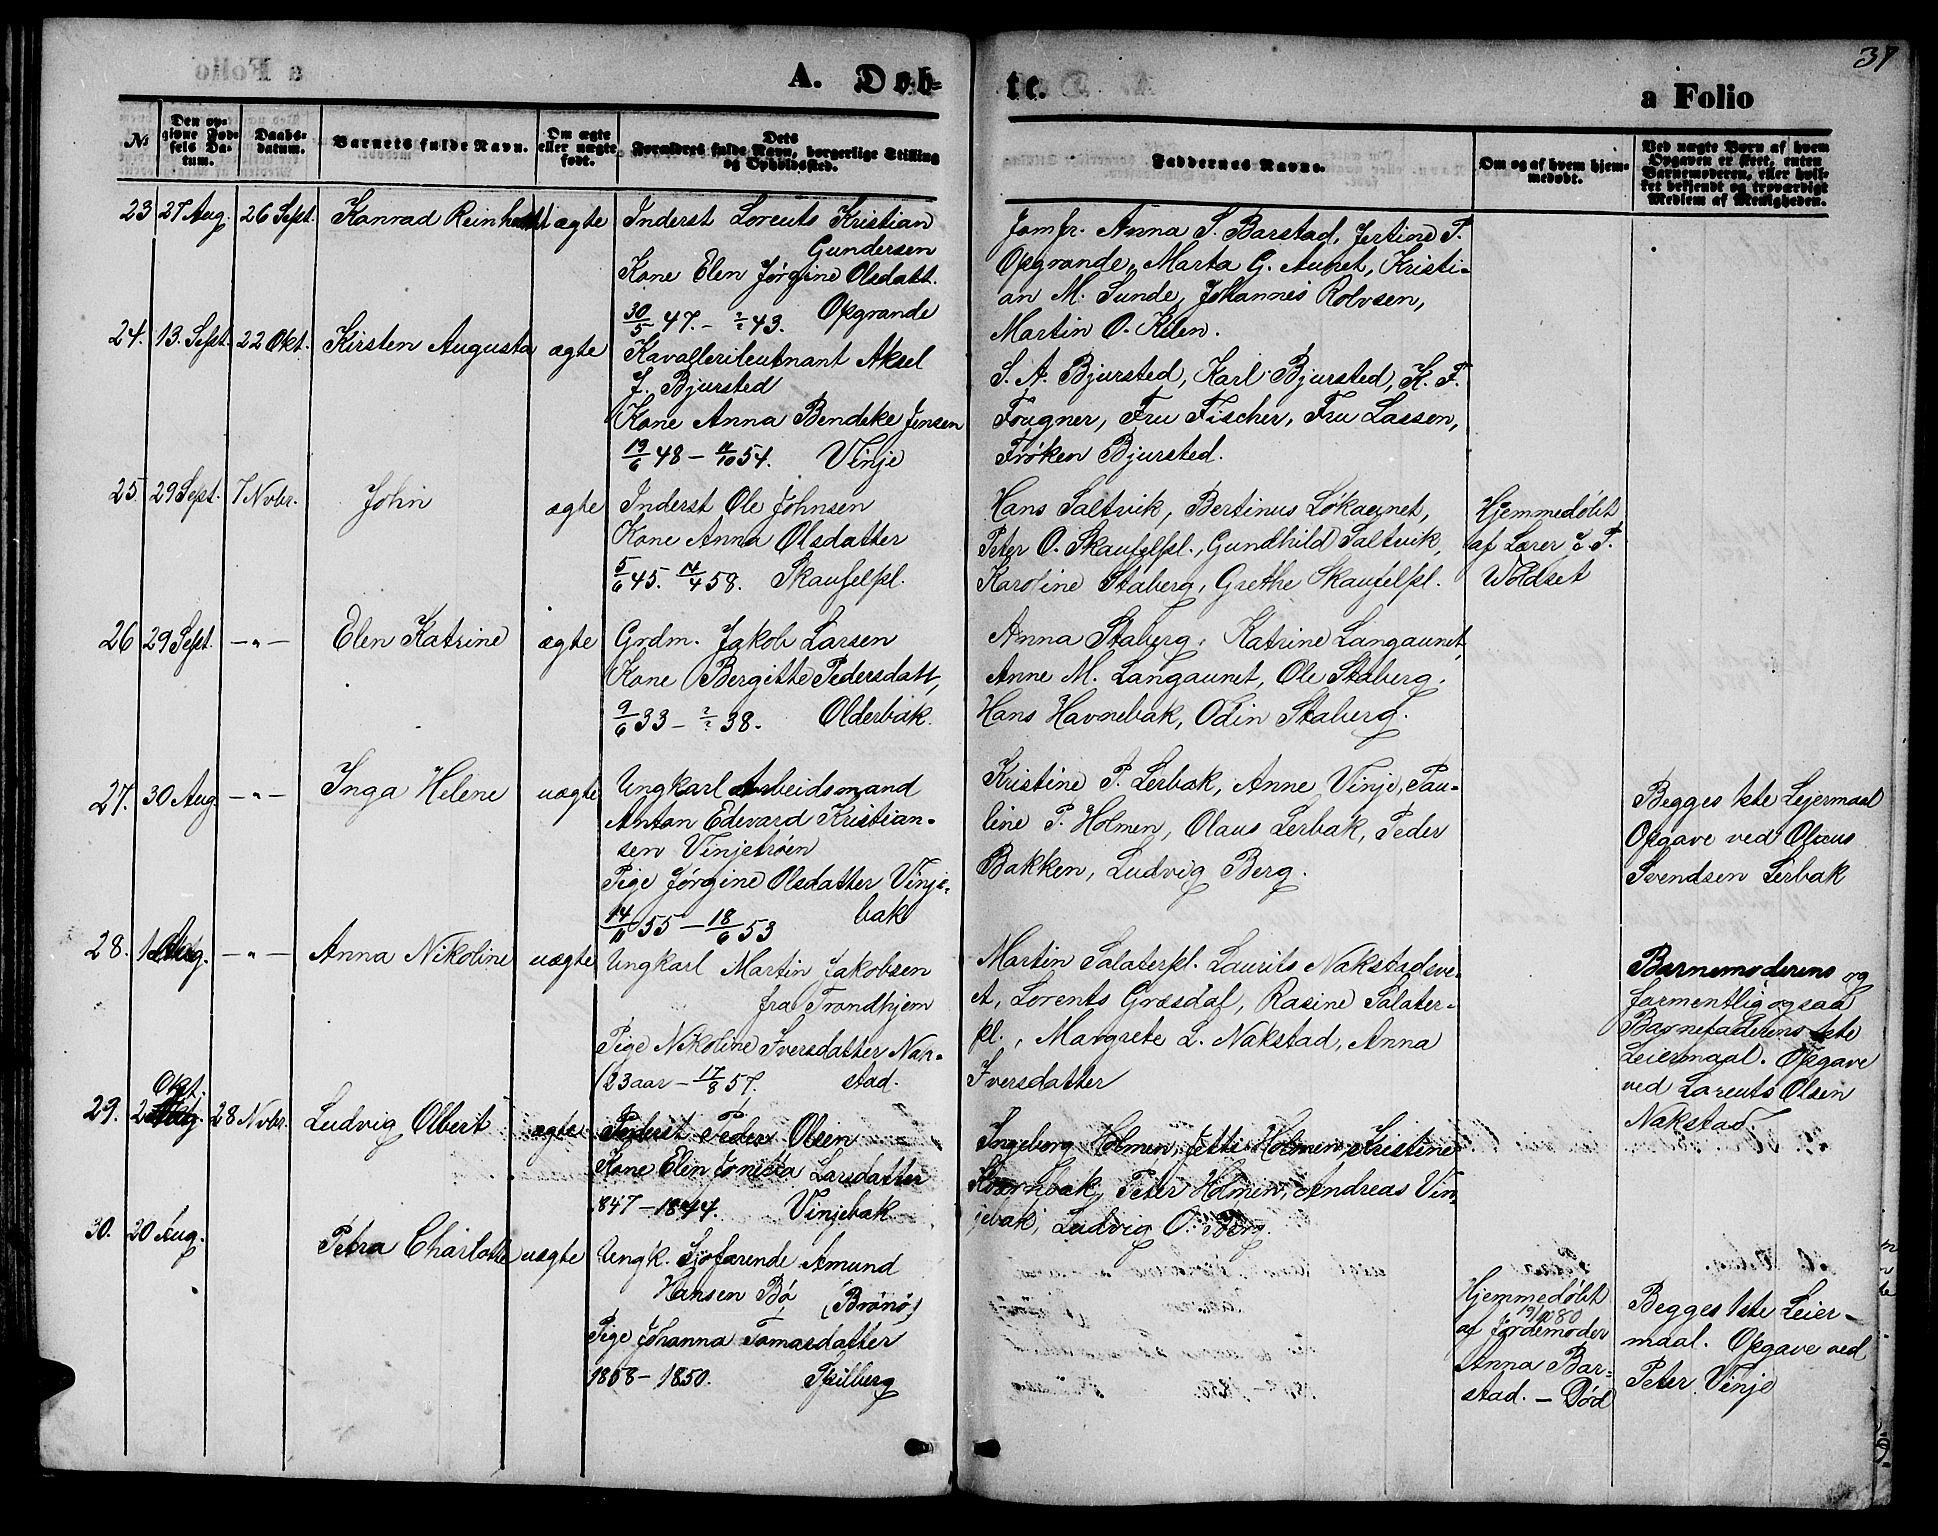 A. Døb-
te.
a Folio
37
№
Den op-
givne Fød-
sels Da-
tum.
Daabs-
datum.
Barnets fulde Navn.
Om ægte
eller uægte
født.
Dets
Forældres fulde Navn, borgerlige Stilling
og Opholdssted.
Faddernes Navne.
Om og af hvem hjem-
medøbt.
Ved uægte Børn af hvem
Opgaven er skeet, enten
Barnemoderen, eller hvil-
ket bekjendt og troværdigt
Medlem af Menigheden.
23 27 Aug. 26 Sept. Konrad Reinhardt ægte
Inderst Lorents Kristian
Gundersen
Kone Elen Jørgine Olsdatt.
30/5 47. - ?/? 43. Opgrande
Jomfr. Anna S. Barstad, Jertine P.
Opgrande, Marta G. Aunet, Kristi-
an M. Sunde, Johannes Rolvsen,
Martin O. Kilen.
24. 13. Sept. 22 Okt. Kirsten Augusta ægte
Kavallerileutnant Aksel
J. Bjursted
Kone Anna Bendeke Jensen
19/6 48 - 11/10 54. Vinje
S. A. Bjursted, Karl Bjursted, K. F.
Fougner, Fru Fischer, Fru Lassen,
Frøken Bjursted.
25. 29 Sept. 7 Novbr. John ægte
Inderst Ole Johnsen
Kone Anna Olsdatter
5/6 45. 14/4 58. Skaufelpl.
Hans Saltvik, Bertinus Løkaunet,
Peter O. Skaufelpl., Gundhild Saltvik,
Karoline Staberg, Grethe Skaufelpl.
Hjemmedøbt
af Lærer J. T.
Woldset
26 29 Sept. - " - Elen Katrine ægte
Grdm. Jakob Larsen
Kone Bergitte Pedersdatt,
9/6 33 - ?/? 38. Olderbak.
Anna Staberg, Katrine Langaunet,
Anne M. Langaunet, Ole Staberg,
Hans Havnebak, Odin Staberg.
27. 30 Aug - " - Inga Helene uægte
Ungkarl Arbeidsmand
Anton Edevard Kristian-
sen Vinjetrøen
Pige Jørgine Olsdatter Vinje-
bak
14/11 55 - 18/6 53
Kristine P. Lerbak, Anne Vinje, Pau-
line P. Holmen, Olaus Lerbak, Peder
Bakken, Ludvig Berg.
Begges 1ste Lejermaal
Opgave ved Olaus
Svendsen Lerbak
28. - " - Anna Nikoline uægte
Ungkarl Martin Jakobsen
fra Trondhjem
Pige Nikoline Iversdatter Nak-
stad.
23 aar - 17/8 57.
Martin Salaterpl. Laurits Nakstadsve-
et, Lorents Græsdal, Rasine Salater-
pl., Margrete L. Nakstad, Anna
Iversdatter
Barnemoderens og
formentlig ogsaa
Barnefaderens 1ste
Leiermaal. Opgave
ved Lorents Olsen
Nakstad.
29. 2 Okt. 28 Novbr. Ludvig Olbert ægte
Inderst Peder Olsen
Kone Elen Larsdatter
1847 - 1844. Vinjebak
Ingeborg Holmen, Jette Holmen, Kristine
Peter Holmen, Andreas Vin-
jebak, Ludvig O. Berg.
30. 20 Aug. Petra Charlotte uægte
Ungk. Sjøfarende Amund
Hansen Bø (Brønø)
Pige Johanna Tomasdatter
1858 - 1850. Pfilberg
Hjemmedøbt
19/10 80
af Jordemoder
Anna Bar-
stad. - Død
Begges 1ste Leier-
maal. Opgave ved
Peter Vinje